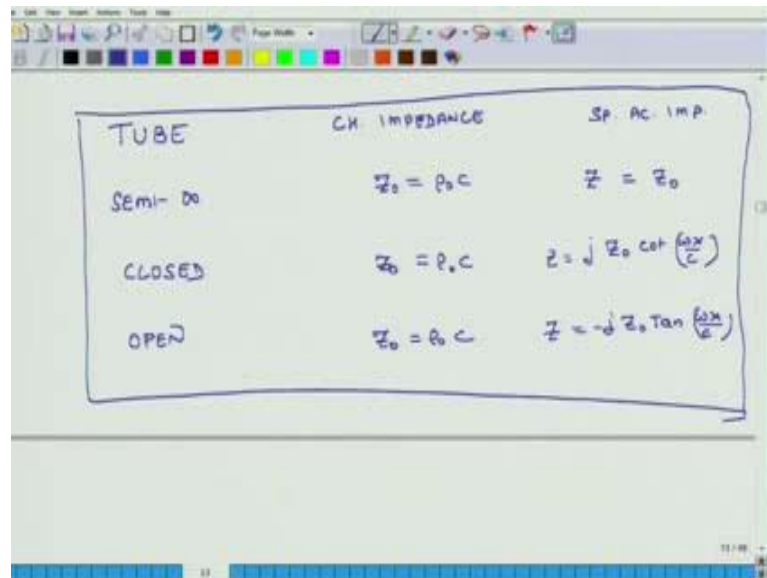 Page Width
TUBE CH. IMPEDANCE SP. AC. IMP.
SEMI-∞ Z₀ = ρ₀C Z = Z₀
CLOSED Z₀ = ρ₀C Z = j Z₀ cot (ωx/c)
OPEN Z₀ = ρ₀C Z = -j Z₀ Tan (ωx/c)
13